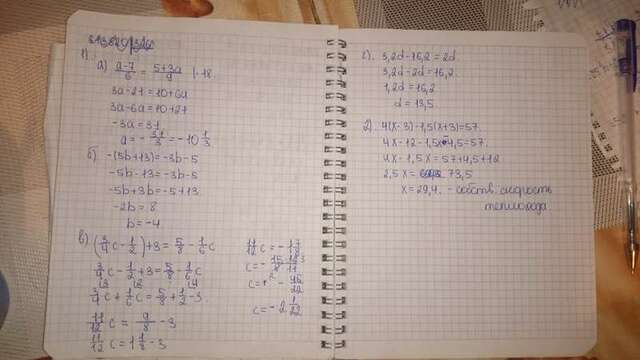 1)
а) (a-7)/6 = (5+3a)/9 |·18
3a-21=10+6a
3a-6a=10+21
-3a=31
a=-31/3=-10 1/3
б) -(5b+13)=-3b-5
-5b-13=-3b-5
-5b+3b=-5+13
-2b=8
b=-4
в) (3/4 c - 1/2)+3=5/8-1/6 c
3/4 c - 1/2+3=5/8-1/6 c
3/4 c+1/6 c=5/8+1/2-3
11/12 c=9/8-3
11/12 c=1 1/8-3
c=-2 1/22
г). 3,2d-16,2=2d
3,2d-2d=16,2
1,2d=16,2
d=13,5
2). 4(x-3)-1,5(x+3)=57.
4x-12-1,5x-4,5=57.
4x-1,5x=57+4,5+12
2,5x= 73,5
x=29,4. - собств. скорость
теплохода